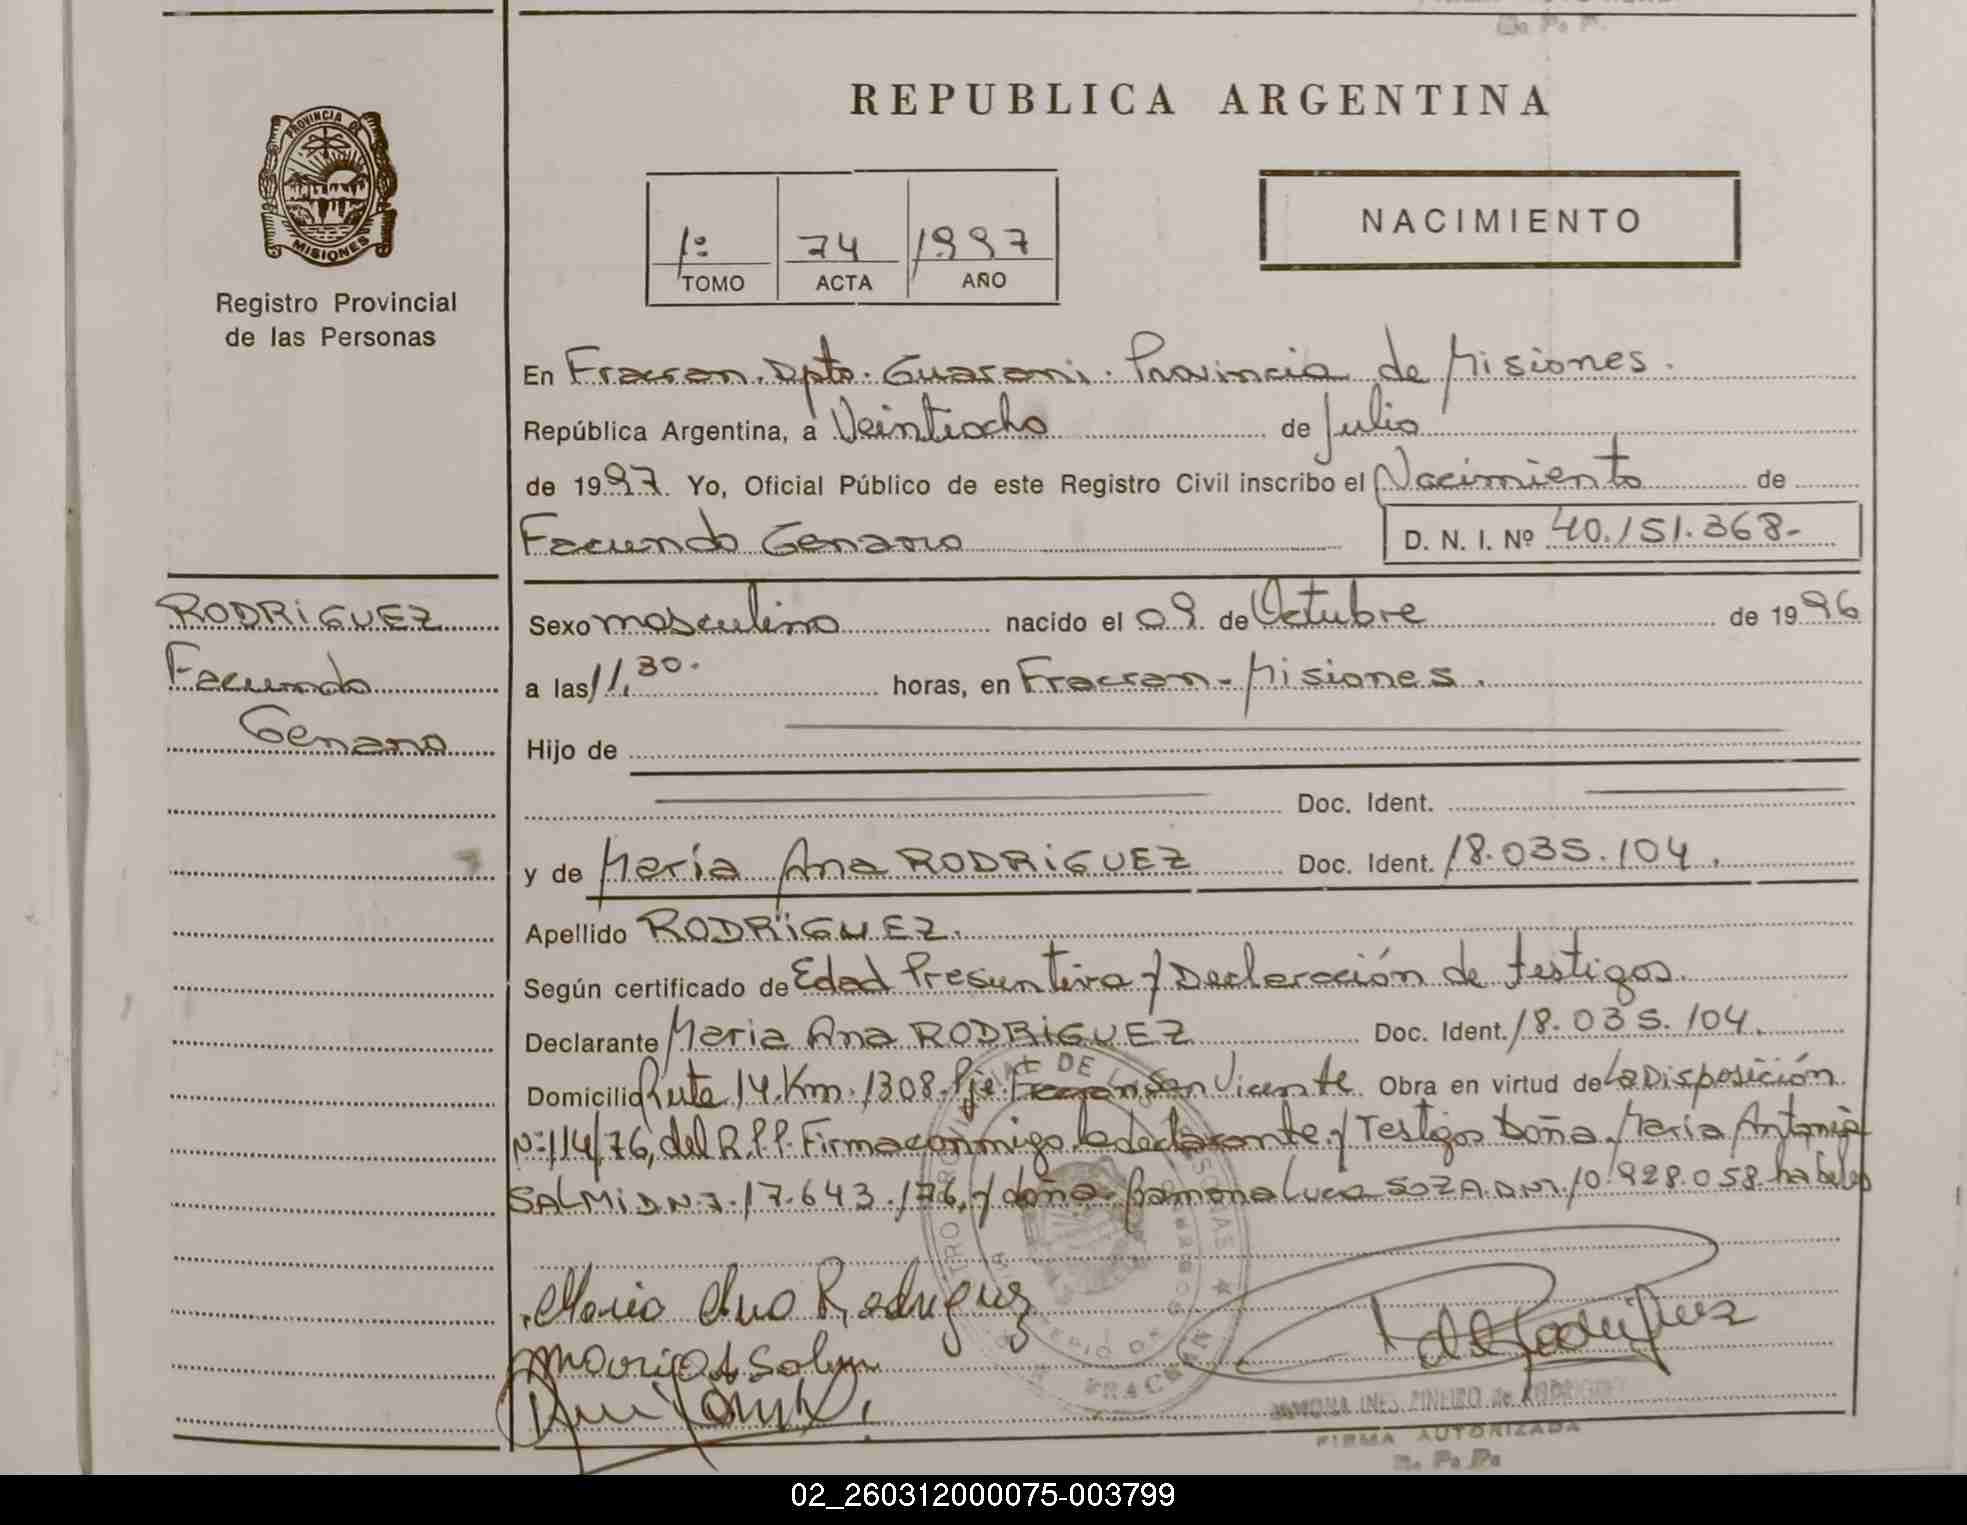 REPUBLICA ARGENTINA
PROVINCIA DE
MISIONES
Registro Provincial
de las Personas
1º 74 1997
TOMO ACTA AÑO
NACIMIENTO
En Fracran. Dpto. Guarani. Provincia de Misiones.
República Argentina, a Veintiocho de Julio
de 1997. Yo, Oficial Público de este Registro Civil inscribo el Nacimiento de
Facundo Genaro D. N. I. Nº 40.151.368-
RODRiGUEZ
Facundo
Genaro
Sexo masculino nacido el 09 de Octubre de 1996
a las 11,30. horas, en Fracran - Misiones.
Hijo de
Doc. Ident.
y de Maria Ana RODRiGUEZ Doc. Ident. 18.035.104.
Apellido RODRiGUEZ.
Según certificado de Edad Presuntiva y Declaración de testigos.
Declarante Maria Ana RODRiGUEZ Doc. Ident. 18.035.104.
Domicilio Ruta 14 Km. 1308. Pje. Fracran San Vicente Obra en virtud de La Disposición
Nº 114/76, del R.P.P. Firma conmigo la declarante y Testigos Doña Maria Antonia
SALMi D.N.I. 17.643.176, y doña Ramona Lucia SOZA DNI. 10.928.058 habiles
Maria Ana Rodriguez
Maria A Salmi
RAMONA INES PINEIRO de RODRIGUEZ
FIRMA AUTORIZADA
R. P. P.
02_260312000075-003799